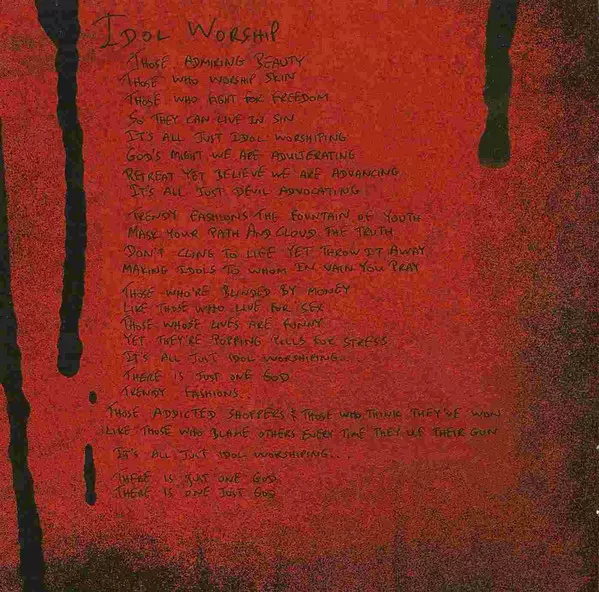 IDOL WORSHIP
THOSE ADMIRING BEAUTY
THOSE WHO WORSHIP SKIN
THOSE WHO FIGHT FOR FREEDOM
SO THEY CAN LIVE IN SIN
IT'S ALL JUST IDOL WORSHIPING
GOD'S MIGHT WE ARE ADULTERATING
RETREAT YET BELIEVE WE ARE ADVANCING
IT'S ALL JUST DEVIL ADVOCATING
TRENDY FASHIONS THE FOUNTAIN OF YOUTH
MASK YOUR PATH AND CLOUD THE TRUTH
DON'T CLING TO LIFE YET THROW IT AWAY
MAKING IDOLS TO WHOM IN VAIN YOU PRAY
THOSE WHO'RE BLINDED BY MONEY
LIKE THOSE WHO LIVE FOR SEX
THOSE WHOSE LIVES ARE FUNNY
YET THEY'RE POPPING PILLS FOR STRESS
IT'S ALL JUST IDOL WORSHIPING...
THERE IS JUST ONE GOD
TRENDY FASHIONS
THOSE ADDICTED SHOPPERS & THOSE WHO THINK THEY'VE WON
LIKE THOSE WHO BLAME OTHERS EVERY TIME THEY USE THEIR GUN
IT'S ALL JUST IDOL WORSHIPING...
THERE IS JUST ONE GOD
THERE IS ONE JUST GOD